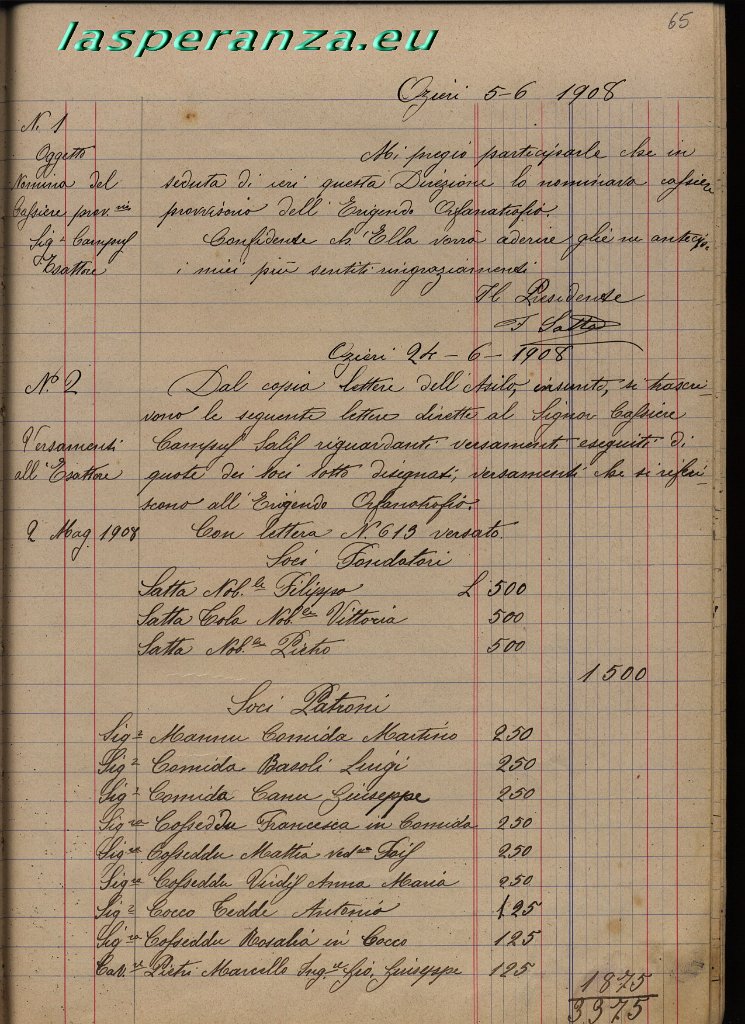 lasperanza.eu
65
Ozieri 5-6 1908
N. 1
Oggetto
Nomina del
Cassiere prov.rio
Sig.r Campus
Esattore
Mi pregio partecipare che in
seduta di ieri questa Direzione lo nominava cassiere
provvisorio dell'Erigendo Orfanotrofio.
Confidente ch'Ella vorrà aderire glie ne antecipo
i miei più sentiti ringraziamenti
Il Presidente
F Satta
Ozieri 24-6-1908
No. 2
Versamenti
all'Esattore
Dal copia lettere dell'Asilo, si trascri-
vono le seguente lettere dirette al Signor Cassiere
Campus Salis riguardanti versamenti eseguiti di
quote dei Soci sotto disegnati, versamenti che si riferi-
scono all'Erigendo Orfanotrofio.
2 Mag. 1908
Con lettera N. 613 versato
Soci Fondatori
Satta Nob.le Filippo £ 500
Satta Cola Nob.le Vittoria 500
Satta Nob.le Pietro 500
1500
Soci Patroni
Sig.r Mannu Comida Martino 250
Sig.r Comida Basoli Luigi 250
Sig.r Comida Canu Giuseppe 250
Sig.ra Cosseddu Francesca in Comida 250
Sig.ra Cosseddu Mattia ved.va Fois 250
Sig.ra Cosseddu Virdis Anna Maria 250
Sig.r Cocco Tedde Antonio 125
Sig.ra Cosseddu Rosalia in Cocco 125
Cav.re Pietri Marcello Ing.re Gio, Giuseppe 125
1875
3375